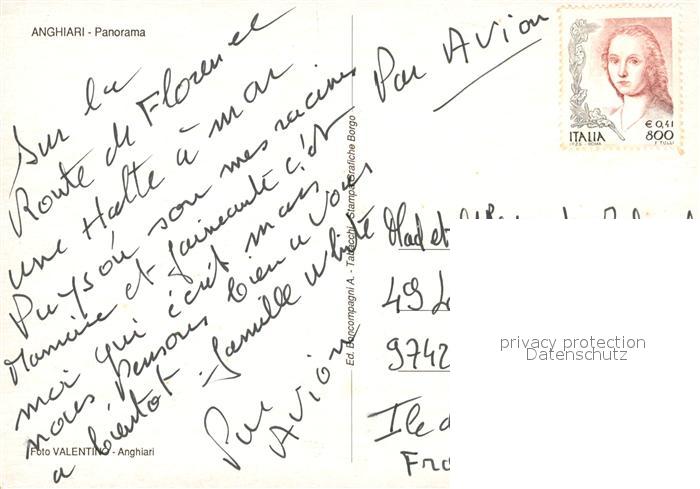 ANGHIARI - Panorama
Sur la
Route de Florence
une Halte à mon
Puyson mes racines
Mamie et fainéante c'est
moi qui écrit mais
nous pensons bien a vous
a bientôt Famille White
Par Avion
Foto VALENTINO - Anghiari
Ed. Boncompagni A. - Tabacchi - Stampa Grafiche Borgo
Par Avion
ITALIA
€ 0,41
800
I.P.Z.S. - ROMA
T. TULLI
Mad et
49
9742
Ile d
Fra
privacy protection
Datenschutz